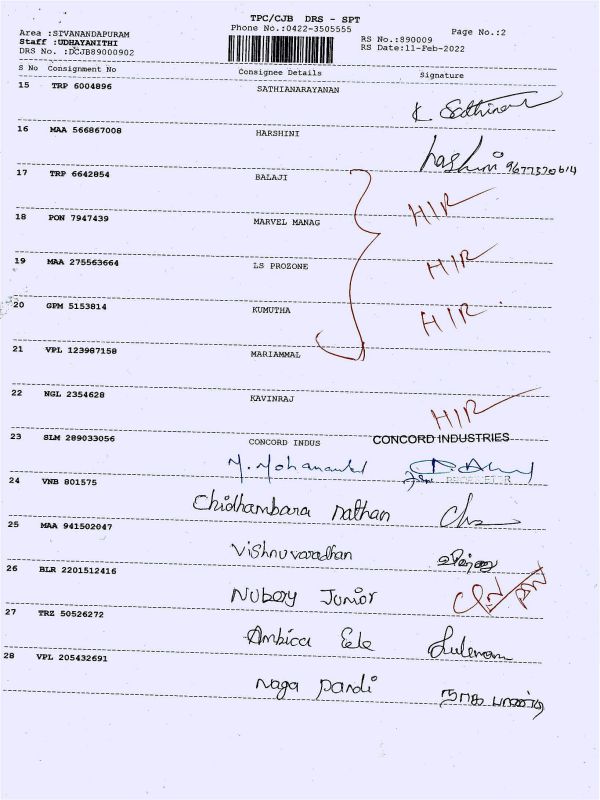 TPC/CJB DRS - SPT
Area :SIVANANDAPURAM
Phone No.:0422-3505555
Page No.:2
Staff :UDHAYANITHI
RS No.:890009
DRS No. :DCJB89000902
RS Date:11-Feb-2022
S No Consignment No Consignee Details Signature
15 TRP 6004896 SATHIANARAYANAN
16 MAA 566867008 HARSHINI
17 TRP 6642854 BALAJI
18 PON 7947439 MARVEL MANAG
HIR
19 MAA 275563664 LS PROZONE
HIR
20 GPM 5153814 KUMUTHA
HIR
21 VPL 123987158 MARIAMMAL
22 NGL 2354628 KAVINRAJ
HIR
23 SLM 289033056 CONCORD INDUS CONCORD INDUSTRIES
24 VNB 801575
Chidhambara Nathan
25 MAA 941502047
Vishnuvaradhan
26 BLR 2201512416
Nubay Junior
27 TRZ 50526272
Ambica Ele
28 VPL 205432691
Naga Pandi